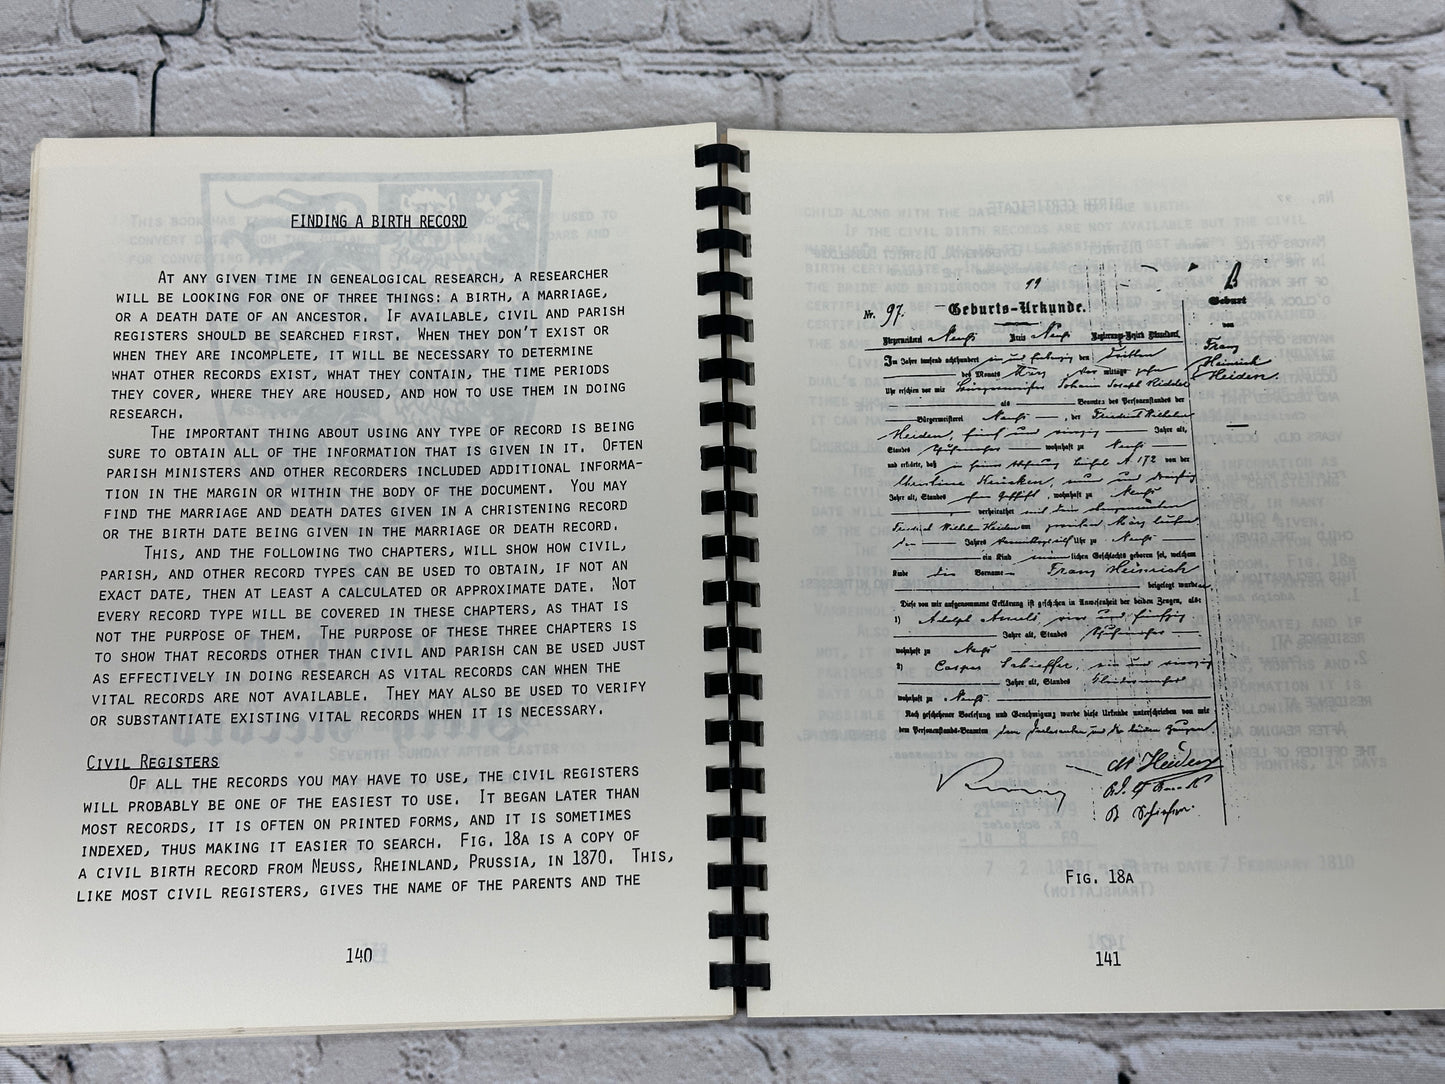 FINDING A BIRTH RECORD
AT ANY GIVEN TIME IN GENEALOGICAL RESEARCH, A RESEARCHER
WILL BE LOOKING FOR ONE OF THREE THINGS: A BIRTH, A MARRIAGE,
OR A DEATH DATE OF AN ANCESTOR. IF AVAILABLE, CIVIL AND PARISH
REGISTERS SHOULD BE SEARCHED FIRST. WHEN THEY DON'T EXIST OR
WHEN THEY ARE INCOMPLETE, IT WILL BE NECESSARY TO DETERMINE
WHAT OTHER RECORDS EXIST, WHAT THEY CONTAIN, THE TIME PERIODS
THEY COVER, WHERE THEY ARE HOUSED, AND HOW TO USE THEM IN DOING
RESEARCH.
THE IMPORTANT THING ABOUT USING ANY TYPE OF RECORD IS BEING
SURE TO OBTAIN ALL OF THE INFORMATION THAT IS GIVEN IN IT. OFTEN
PARISH MINISTERS AND OTHER RECORDERS INCLUDED ADDITIONAL INFORMA-
TION IN THE MARGIN OR WITHIN THE BODY OF THE DOCUMENT. YOU MAY
FIND THE MARRIAGE AND DEATH DATES GIVEN IN A CHRISTENING RECORD
OR THE BIRTH DATE BEING GIVEN IN THE MARRIAGE OR DEATH RECORD.
THIS, AND THE FOLLOWING TWO CHAPTERS, WILL SHOW HOW CIVIL,
PARISH, AND OTHER RECORD TYPES CAN BE USED TO OBTAIN, IF NOT AN
EXACT DATE, THEN AT LEAST A CALCULATED OR APPROXIMATE DATE. NOT
EVERY RECORD TYPE WILL BE COVERED IN THESE CHAPTERS, AS THAT IS
NOT THE PURPOSE OF THEM. THE PURPOSE OF THESE THREE CHAPTERS IS
TO SHOW THAT RECORDS OTHER THAN CIVIL AND PARISH CAN BE USED JUST
AS EFFECTIVELY IN DOING RESEARCH AS VITAL RECORDS CAN WHEN THE
VITAL RECORDS ARE NOT AVAILABLE. THEY MAY ALSO BE USED TO VERIFY
OR SUBSTANTIATE EXISTING VITAL RECORDS WHEN IT IS NECESSARY.
CIVIL REGISTERS
OF ALL THE RECORDS YOU MAY HAVE TO USE, THE CIVIL REGISTERS
WILL PROBABLY BE ONE OF THE EASIEST TO USE. IT BEGAN LATER THAN
MOST RECORDS, IT IS OFTEN ON PRINTED FORMS, AND IT IS SOMETIMES
INDEXED, THUS MAKING IT EASIER TO SEARCH. FIG. 18A IS A COPY OF
A CIVIL BIRTH RECORD FROM NEUSS, RHEINLAND, PRUSSIA, IN 1870. THIS,
LIKE MOST CIVIL REGISTERS, GIVES THE NAME OF THE PARENTS AND THE
140
B
Geburt
von
Franz
Heinrich
Heiden.
Nr. 97. Geburts-Urkunde.
Bürgermeisterei Neuß Kreis Neuß Regierungs-Bezirk Düsseldorf.
Im Jahre tausend achthundert den
des Monats März mittags
Uhr erschien vor mir Johann Joseph
als Beamten des Personenstandes der
Bürgermeisterei Neuß, der Friedrich Wilhelm
Heiden, fünf und Jahre alt,
Standes wohnhaft zu Neuß
und erklärte, daß in seiner 172 von der
Christine Heinken,
Jahre alt, Standes wohnhaft zu Neuß
verheirathet mit dem
Friedrich Wilhelm Heiden am März
Jahres Uhr zu Neuß
ein Kind lichen Geschlechts geboren sei, welchem
Kinde die Vorname Franz Heinrich
beigelegt wurde
Diese von mir aufgenommene Erklärung ist geschehen in Anwesenheit der beiden Zeugen, als:
1) Adolph
Jahre alt, Standes
wohnhaft zu Neuß
2) Caspar Schieffer,
Jahre alt, Standes
wohnhaft zu Neuß
Nach geschehener Vorlesung und Genehmigung wurde diese Urkunde unterschrieben von mir
dem Personenstands-Beamten
Heiden
FIG. 18A
141